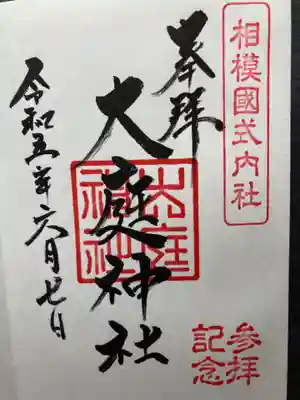 相模國式内社
奉拝
大庭神社
大庭神社
令和五年六月七日
参拝記念